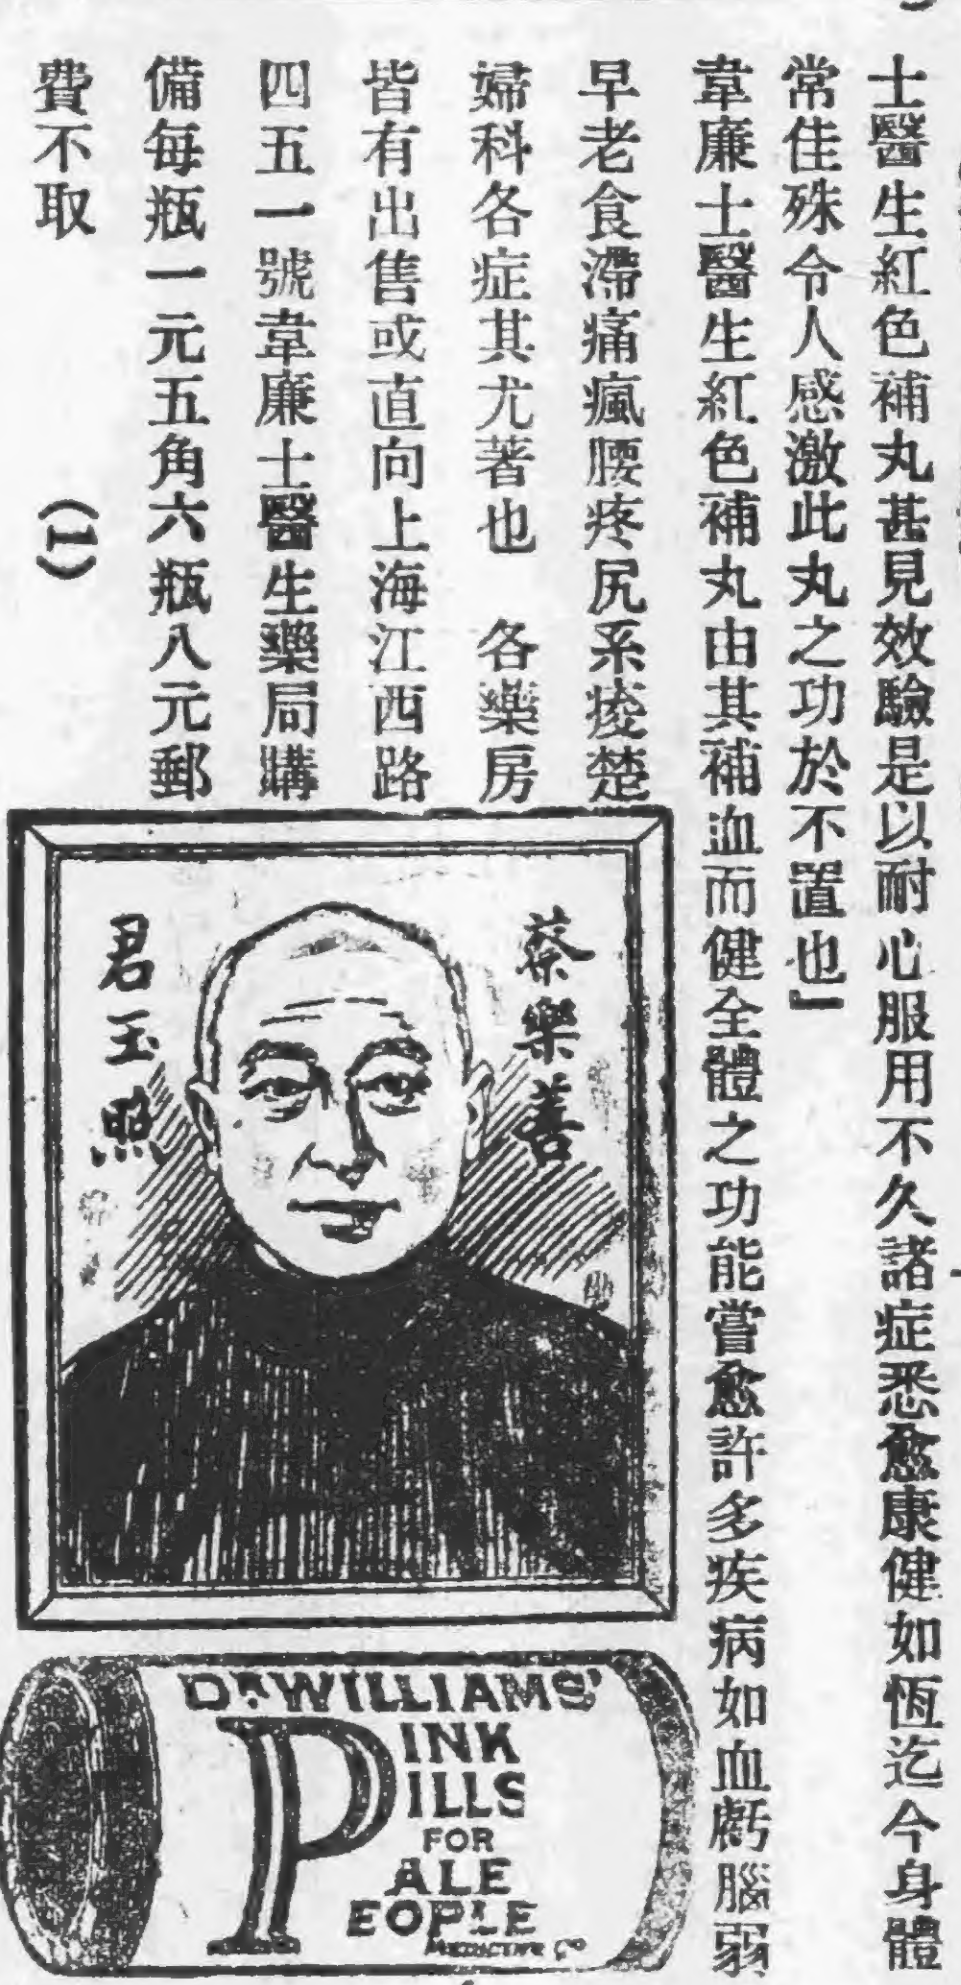 士醫生紅色補丸甚見效驗是以耐心服用不久諸症悉愈康健如恆迄今身體
常佳殊令人感激此丸之功於不置也』
韋廉士醫生紅色補丸由其補血而健全體之功能嘗愈許多疾病如血虧腦弱
早老食滯痛瘋腰疼尻系痠楚
婦科各症其尤著也　各藥房
皆有出售或直向上海江西路
四五一號韋廉士醫生藥局購
備每瓶一元五角六瓶八元郵
費不取
(1)
蔡樂善
君玉照
DR WILLIAMS'
PINK
PILLS
FOR
PALE
PEOPLE
MEDICINE Co